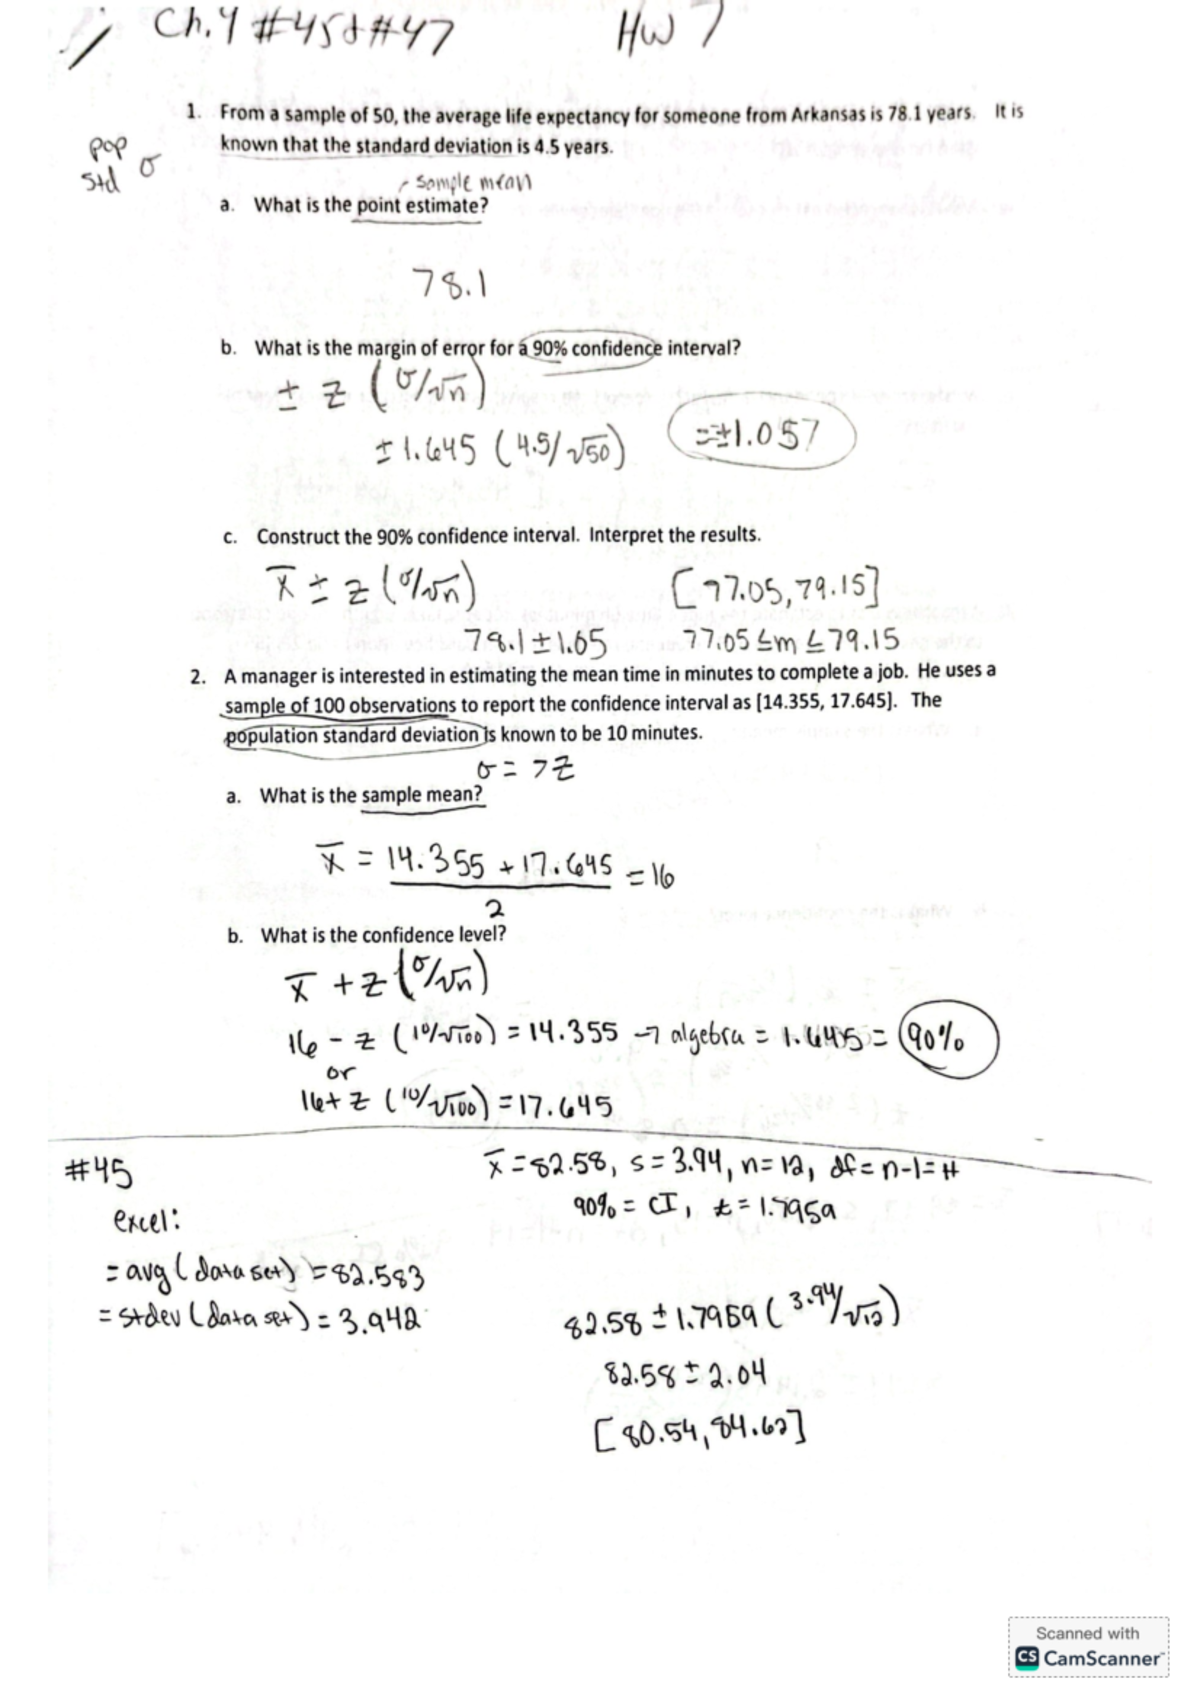 Ch. 4 #45 & #47 HW 7
1. From a sample of 50, the average life expectancy for someone from Arkansas is 78.1 years. It is
known that the standard deviation is 4.5 years.
pop
std σ
- sample mean
a. What is the point estimate?
78.1
b. What is the margin of error for a 90% confidence interval?
± z (σ/√n)
± 1.645 (4.5/√50) = ±1.057
c. Construct the 90% confidence interval. Interpret the results.
x̄ ± z (σ/√n) [77.05, 79.15]
78.1 ± 1.05 77.05 ≤ m ≤ 79.15
2. A manager is interested in estimating the mean time in minutes to complete a job. He uses a
sample of 100 observations to report the confidence interval as [14.355, 17.645]. The
population standard deviation is known to be 10 minutes.
σ = 7z
a. What is the sample mean?
x̄ = 14.355 + 17.645 = 16
2
b. What is the confidence level?
x̄ + z (σ/√n)
16 - z (10/√100) = 14.355 → algebra = 1.645 = 90%
or
16 + z (10/√100) = 17.645
#45 x̄ = 82.58, s = 3.94, n = 12, df = n-1 = 11
90% = CI, t = 1.7959
excel:
= avg (data set) = 82.583
= stdev (data set) = 3.942
82.58 ± 1.7959 (3.94/√12)
82.58 ± 2.04
[80.54, 84.62]
Scanned with
CS CamScanner